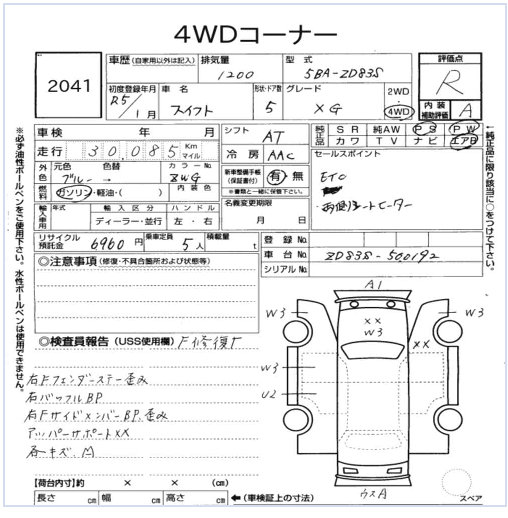 4WDコーナー
2041
車歴 (自家用以外は記入) 排気量 型式
1200 5BA-ZD83S
評価点
R
初度登録年月 車名 形状・ドア数 グレード
R5/1月 スイフト 5 XG
2WD
4WD
内装補助評価 A
車検 年 月
走行 30,085 Km マイル
シフト AT
冷房 AAC
純正品 SR 純AW PS PW
カワ TV ナビ エアB
セールスポイント
ETC
シートヒーター
外色 元色 色替 カラーNo
ブルー → ZWG
燃料 ガソリン・軽油・( ) 内装色
新車整備手帳(保証書付) 有・無
※書類と一緒に保管下さい。
名義変更期限
月 日
輸入車用 年式 輸入区分 ハンドル
ディーラー・並行 左・右
リサイクル預託金 6960円 乗車定員 5人 積載量 t
登録No.
車台No. ZD83S-500192
シリアルNo.
※必ず油性ボールペンをご使用下さい。水性ボールペンは使用できません。
←純正品に限り該当に○をつけて下さい。
◎注意事項 (修復・不具合箇所および状態等)
◎検査員報告 (USS使用欄) F修復F
右Fフェンダーステー歪み
右バッフルBP
右Fサイドメンバー BP、歪み
アッパーサポートXX
各キズ、凹
A1
W3
XX
W3
W3
XX
W3
U2
W3
W3
ウスA
スペア
【荷台内寸】約 × × (cm)
長さ cm 幅 cm 高さ cm
←(車検証上の寸法)